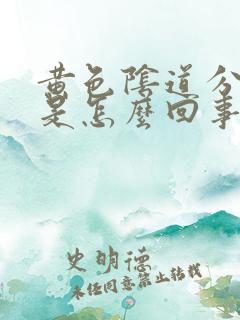 黄色陰道分
是怎麼回事
史明德
未经同意禁止转载